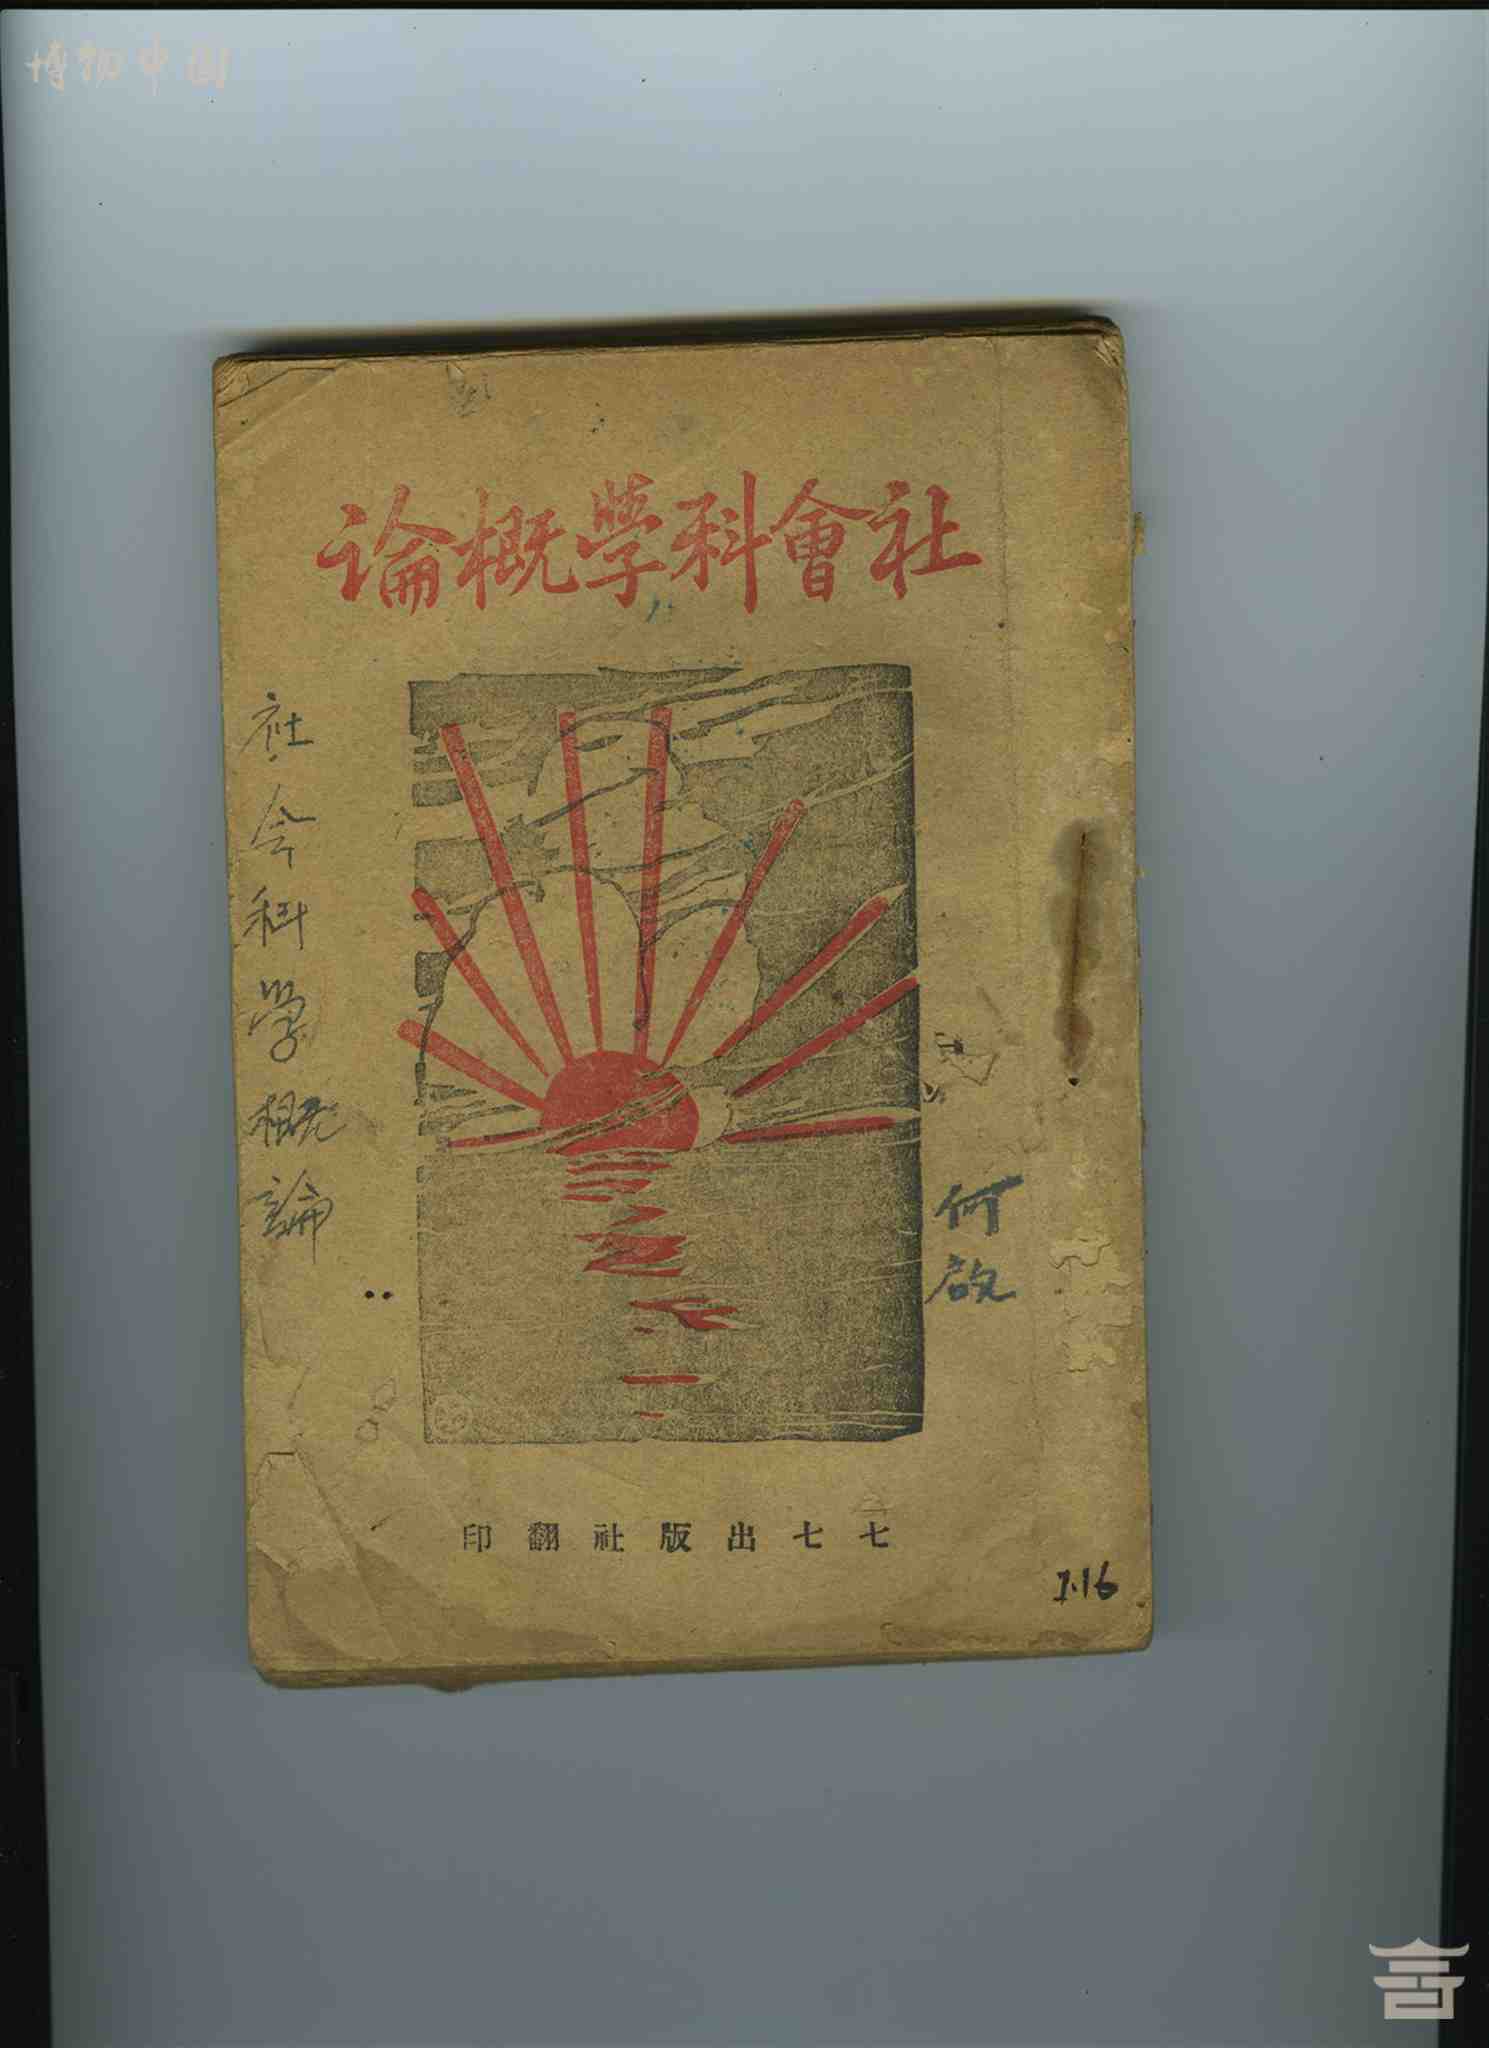 博物中国
社會科學概論
社会科学概論
何啟
七七出版社翻印
7.16